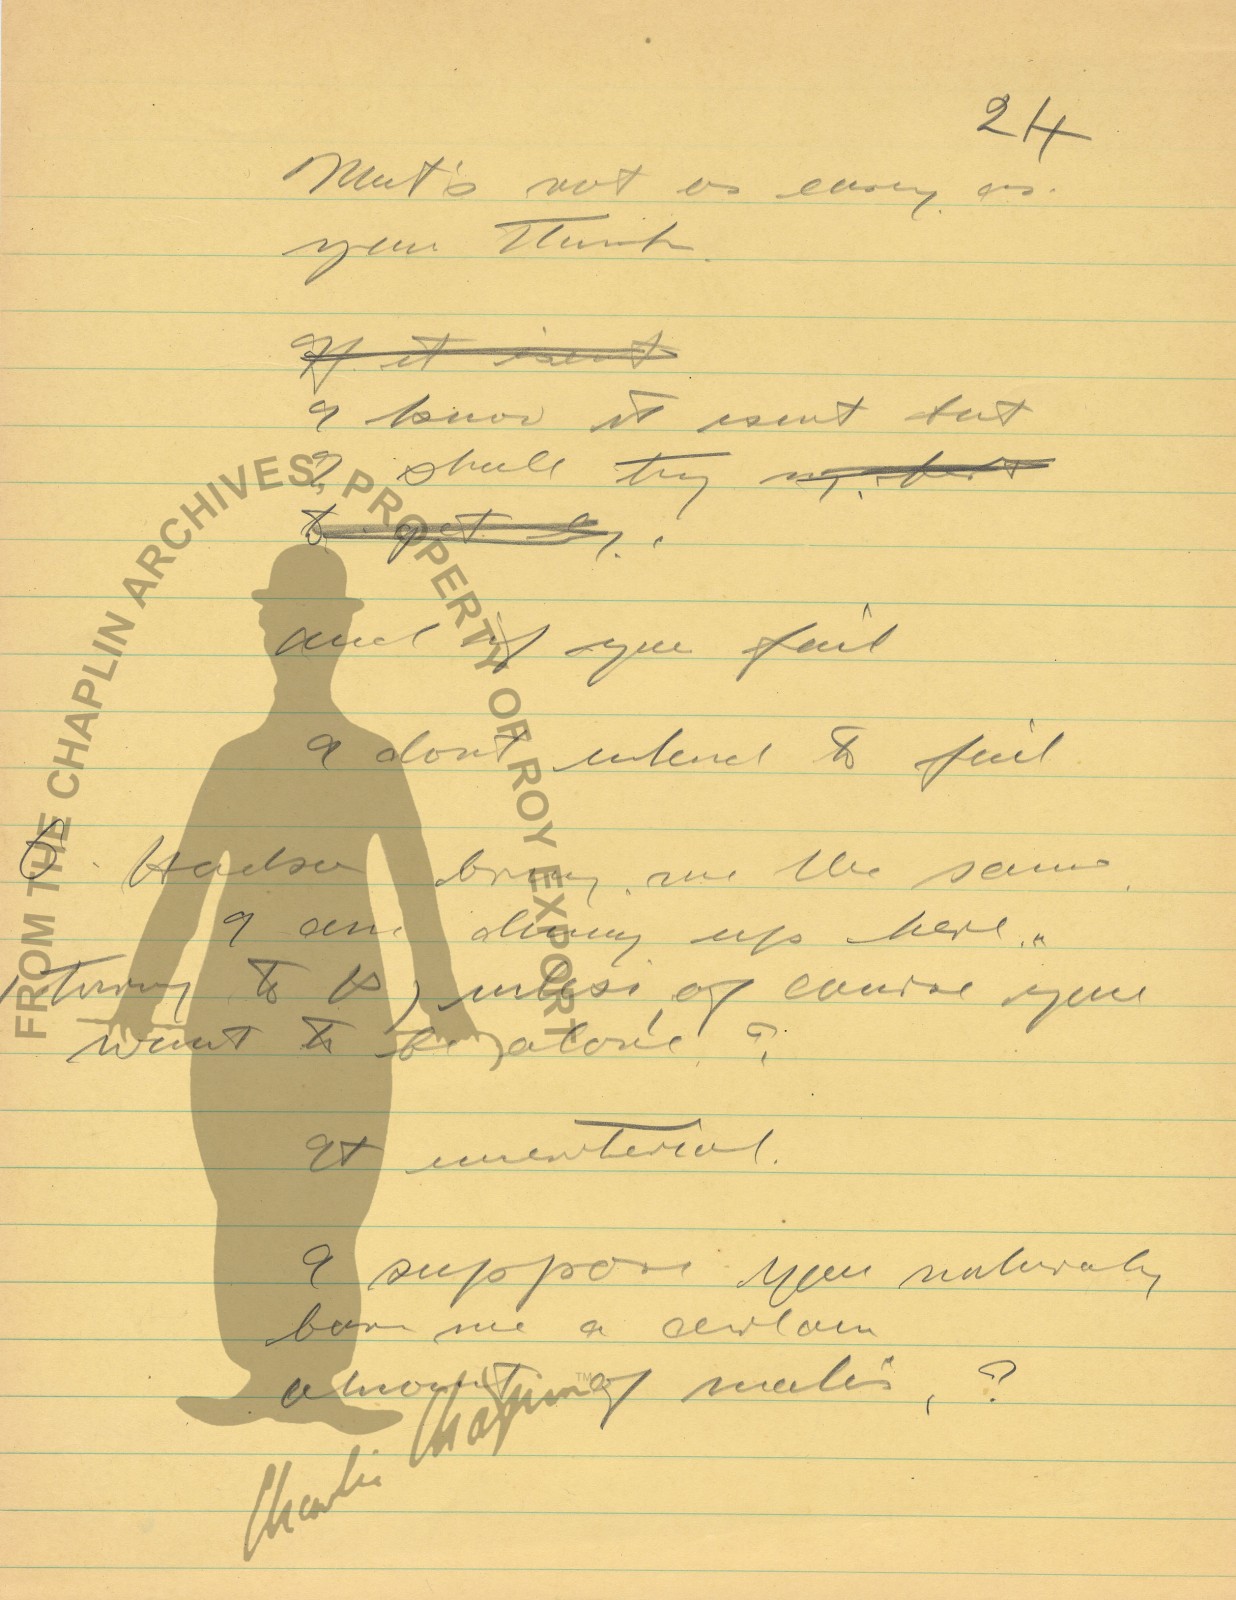 24
That's not as easy as
you Think.
If it isent
I know it isent but
I shall try my best
to get by.
and if you fail
I dont intend to fail
O. Hudson bring me the same.
I am dining up here."
turning to B) unless, of course you
want to be) alone. ?
It imaterial.
I suppose you naturaly
bare me a certain
amount of malis, ?
FROM THE CHAPLIN ARCHIVES, PROPERTY OF ROY EXPORT
Charlie Chaplin TM